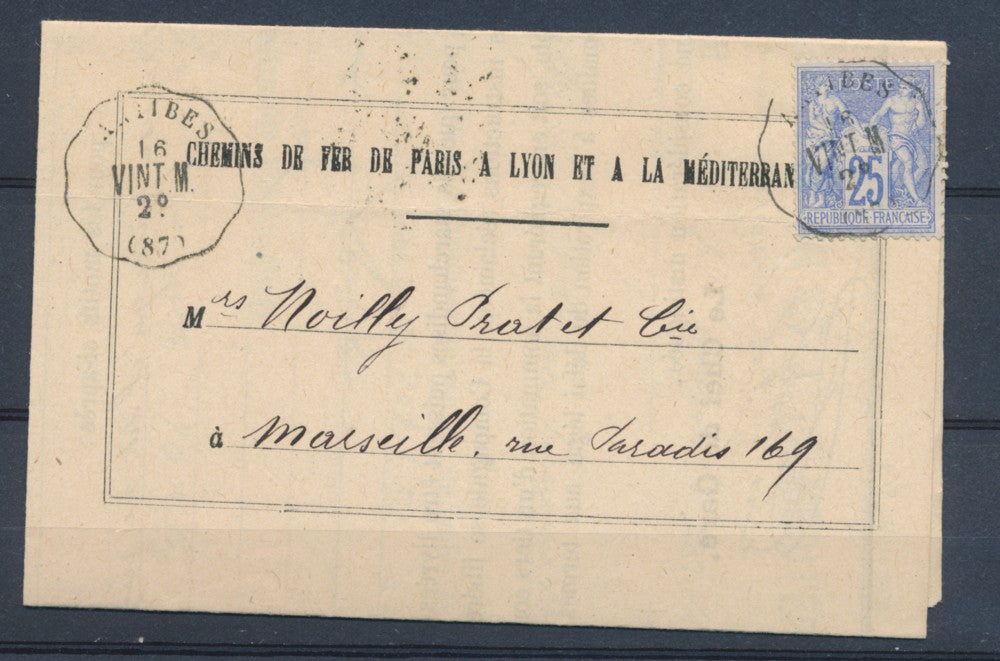 ANTIBES
16
VINT.M.
2º
(87)
CHEMINS DE FER DE PARIS A LYON ET A LA MÉDITERRAN
ANTIBES
16
VINT.M
2º
25
REPUBLIQUE FRANCAISE
Mrs Noilly Prat et Cie
à Marseille, rue Paradis 169